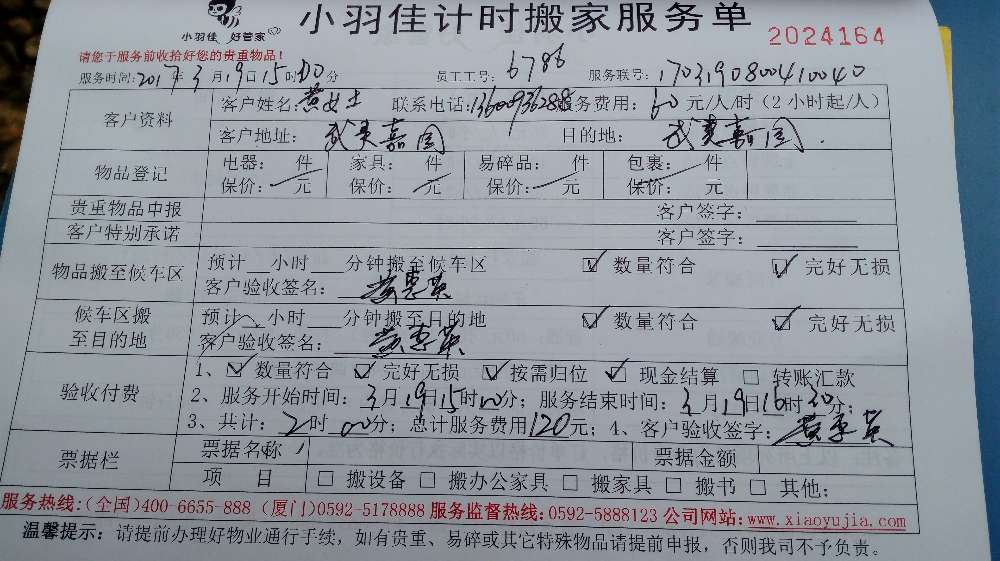 小羽佳 好管家
小羽佳计时搬家服务单
2024164
请您于服务前收拾好您的贵重物品！
服务时间:2017年3月19日15时00分 员工工号: 6786 服务联号: 1703190800410040
客户资料 客户姓名: 黄女士 联系电话: 服务费用: 60元/人/时（2小时起/人）
客户地址: 武夷嘉园 目的地: 武夷嘉园
物品登记 电器: 件 家具: 件 易碎品: 件 包裹: 件
保价: 元 保价: 元 保价: 元 保价: 元
贵重物品申报 客户签字:
客户特别承诺 客户签字:
物品搬至候车区 预计__小时___分钟搬至候车区 ☑ 数量符合 ☑ 完好无损
客户验收签名:
候车区搬至目的地 预计__小时___分钟搬至目的地 ☑ 数量符合 ☑ 完好无损
客户验收签名:
验收付费 1、☑ 数量符合 ☑ 完好无损 ☑ 按需归位 ☑ 现金结算 □ 转账汇款
2、服务开始时间: 3月19日15时00分; 服务结束时间: 3月19日16时30分;
3、共计: 2时00分; 总计服务费用120元; 4、客户验收签字:
票据栏 票据名称 票据金额
项 目 □ 搬设备 □ 搬办公家具 □ 搬家具 □ 搬书 □ 其他:
服务热线:(全国)400-6655-888 (厦门)0592-5178888 服务监督热线:0592-5888123 公司网站:www.xiaoyujia.com
温馨提示: 请提前办理好物业通行手续，如有贵重、易碎或其它特殊物品请提前申报，否则我司不予负责。